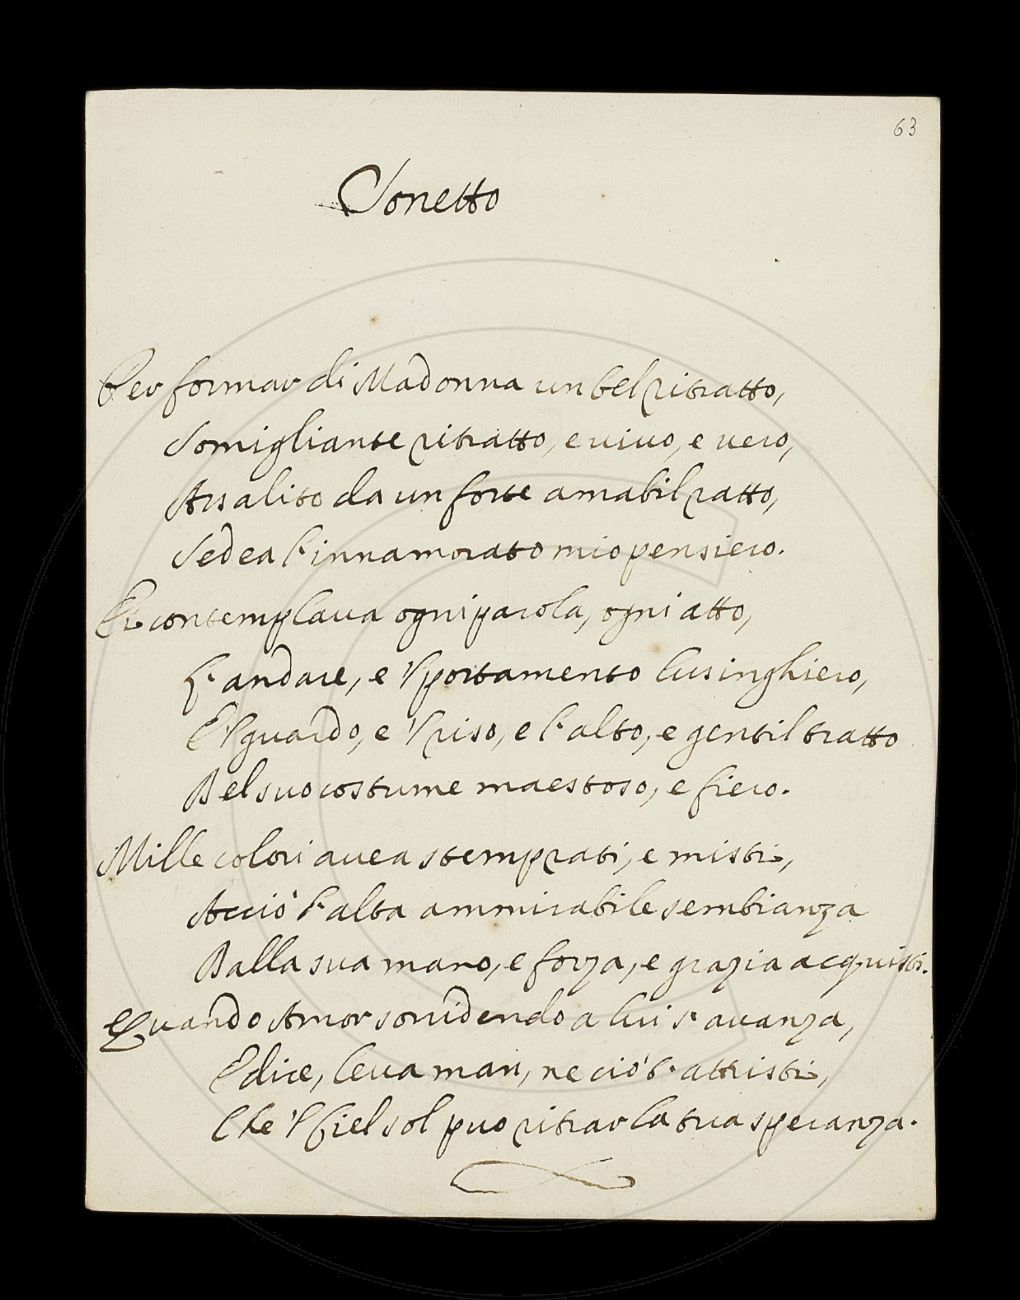 63
Sonetto
Per formar di Madonna un bel ritratto,
Somigliante ritratto, e vivo, e vero,
Assalito da un forte amabil ratto,
Sedea l'innamorato mio pensiero.
Ei contemplava ogni parola, ogni atto,
L'andare, e 'l portamento lusinghiero,
E 'l guardo, e 'l riso, e l'alto, e gentil tratto
Del suo costume maestoso, e fiero.
Mille colori avea stemprati, e misti,
Acciò l'alta ammirabile sembianza
Dalla sua mano, e forza, e grazia acquisti.
Quando Amor sorridendo a lui s'avanza,
E dice, leva man, ne ciò t'attristi,
Che 'l fiel sol puo ritrar la tua speranza.